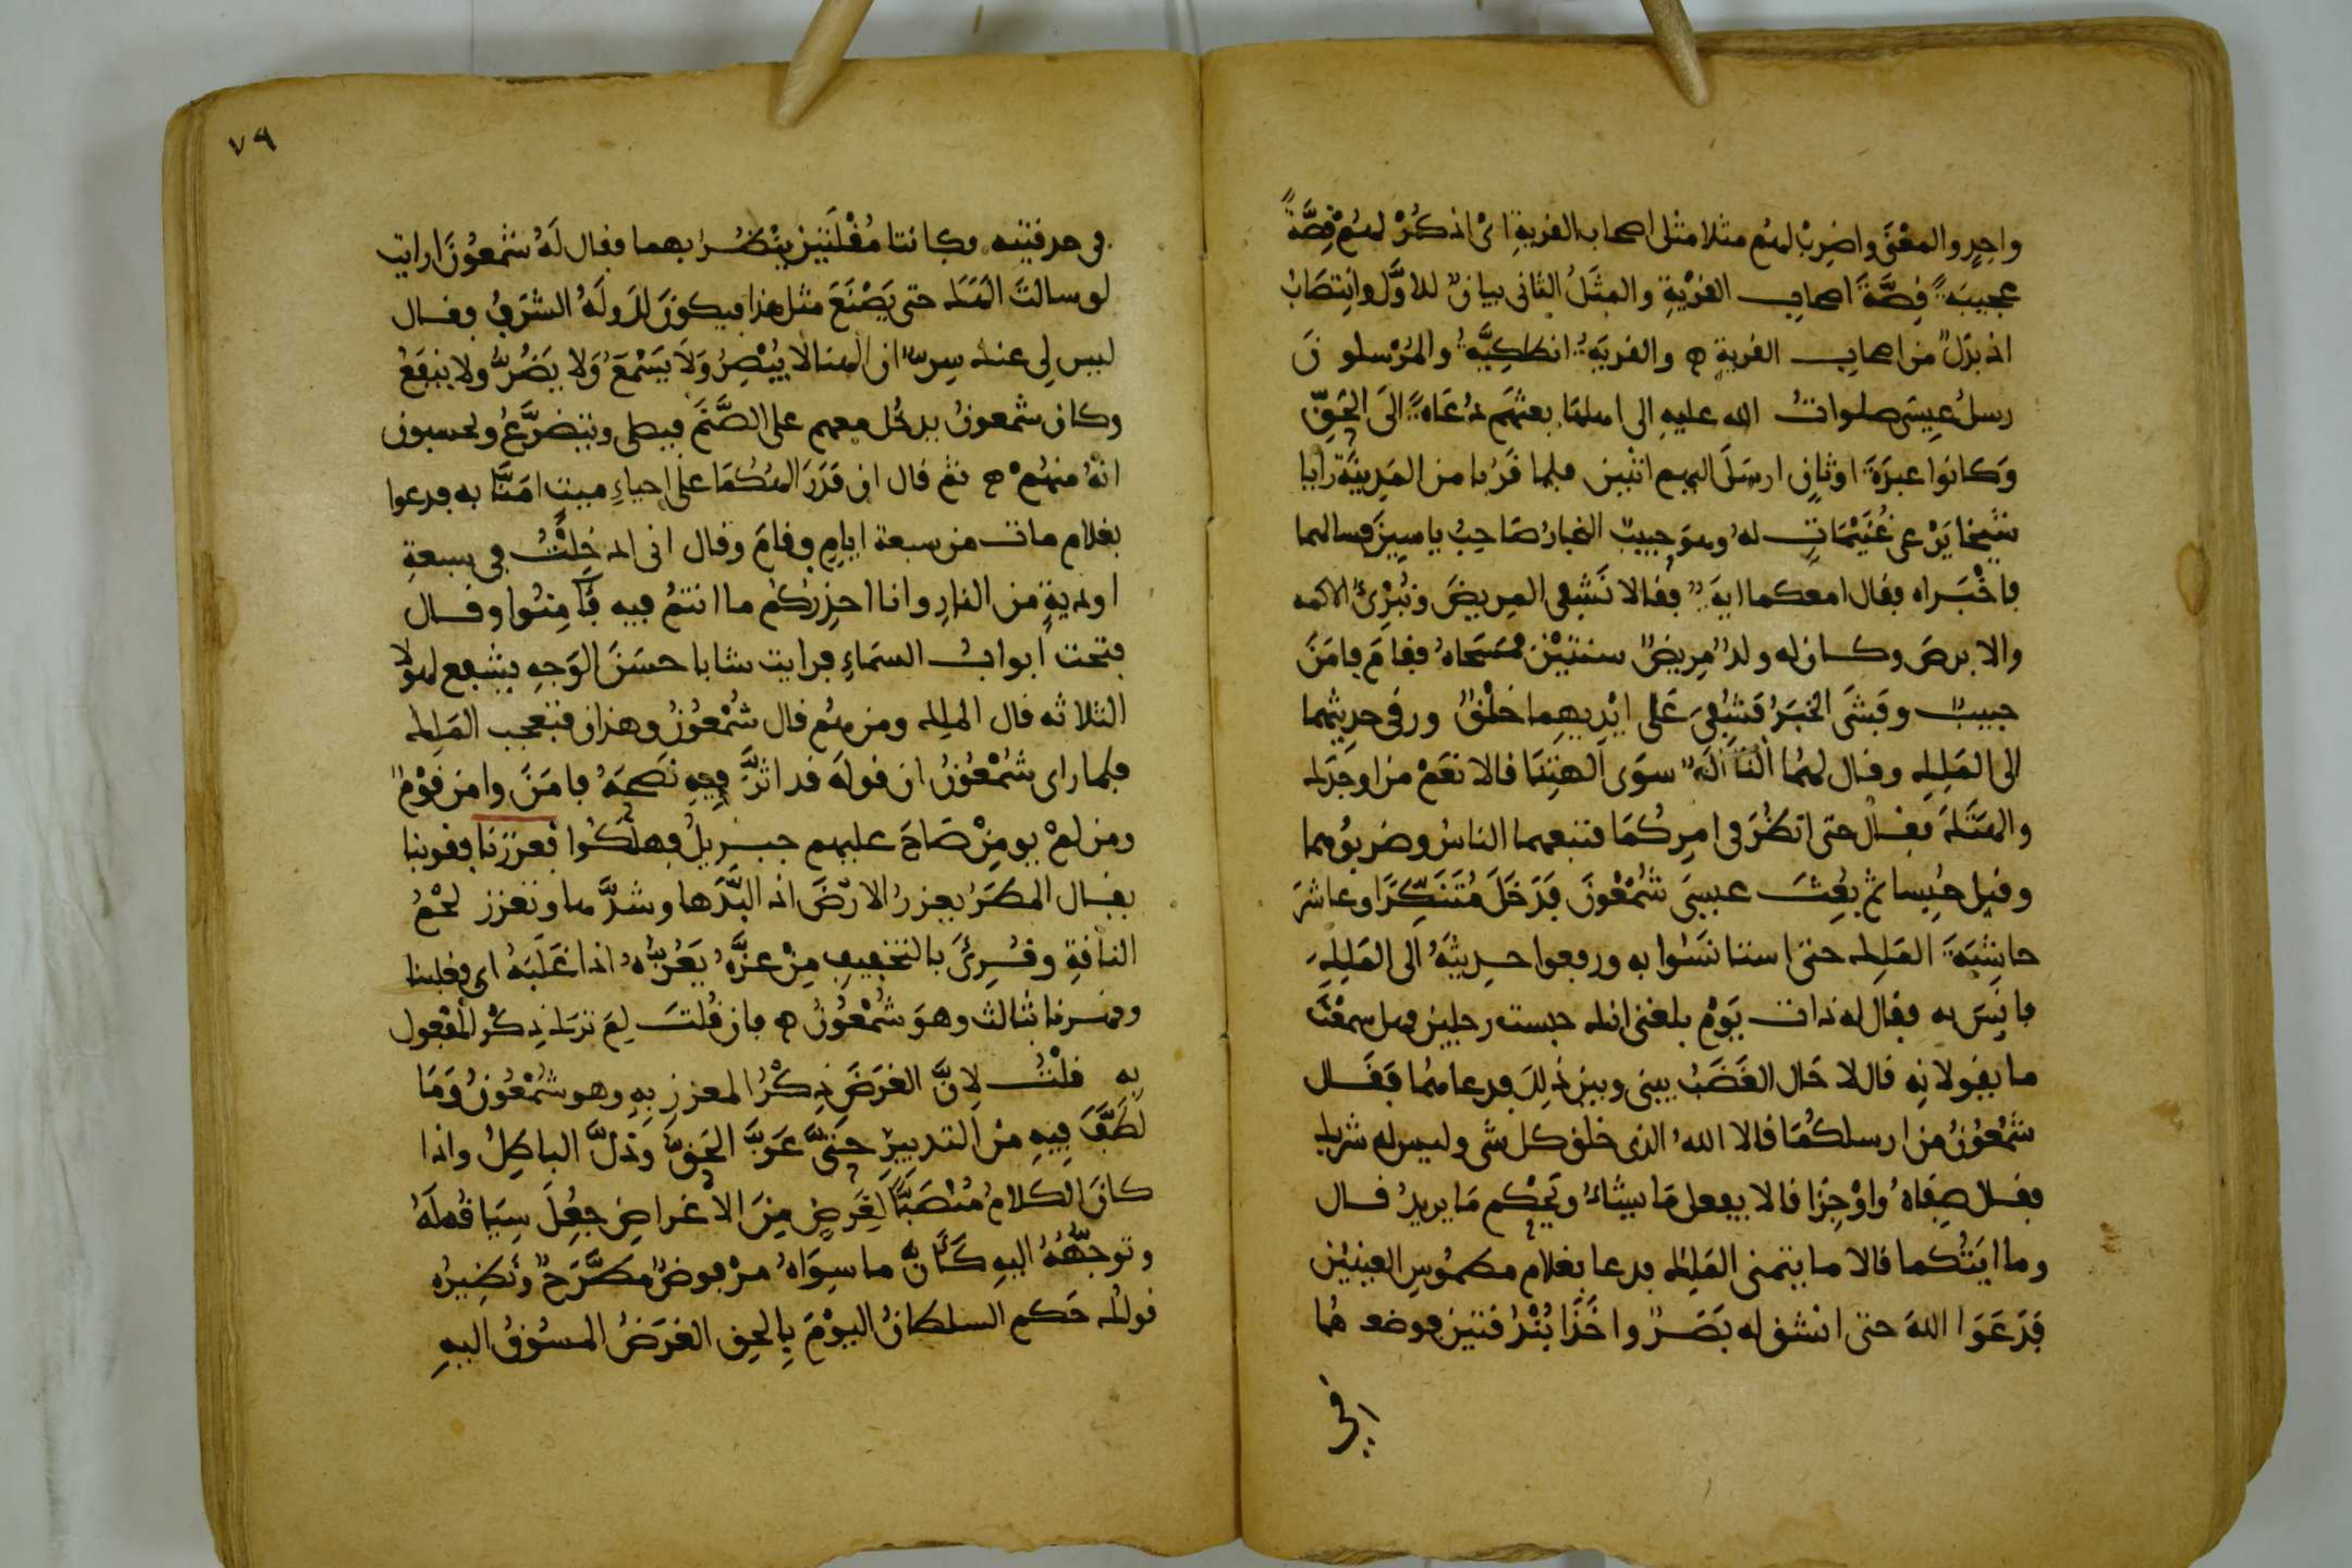 واحِدٍ والمعْنَى واضرِبْ لهُم مثلا مثلَ اصحاب القريةِ اىْ اذكُرْ لهُمْ قِصَّةً
عجيبَةً قِصَّةَ اصحابِ القرْيةِ والمثَلُ الثانى بيانٌ للاوَّل وانتِصَابُ
اذ بَدَلٌ من اصحابِ القرية ه والقريَةُ انطاكِيَّةُ والمُرْسلونَ
رسلُ عِيسَى صلواتُ الله عليهِ الى اهلهَا بعثهُم دُعَاةً الىَ الحَقِّ
وَكانوا عبَدَةَ اوثانٍ ارسَلَ اليهم اثنين فلما قَرُبا من المَدِينَة رايا
شيخا يَرْعى غُنَيْمَاتٍ لهُ وهوَ حبيبُ النجارُ صَاحِبُ ياسِينَ فسالهما
فاخْبَراه فقال امعكما ايةٌ فقالا نَشفِى المرِيضَ ونُبْرِئُ الاكمه
والابرصَ وكان له ولدٌ مرِيضٌ سنتَيْنِ فمسَحَاهُ فقامَ فامَنَ
حبيبٌ وفَشَى الخبَرُ فَشُفِىَ عَلى ايْدِيهِما خلْقٌ ورقى حديثهما
الى المَلِكِ وقال لهُما النَا اِلَهٌ سوَى الهتِنَا قالا نعَمْ من اوجَدَك
والهتَكَ فقال حتى انظُرَ فى امرِكُمَا فتبعهما الناسُ وضربُوهما
وقيل حُبِسا ثم بعُثَ عيسىَ شَمْعُونَ فدَخَلَ مُتَنَكِّرًا وعاشَرَ
حاشِيَةَ المَلِك حتى استانَسُوا به ورفعوا حديثَهُ الى المَلِكِ
فانِسَ به فقال له ذاتَ يَوْمٍ بلغنى انك حبست رجلين فهل سمعْتَ
ما يقولانِهِ قال لا حَال الغَضَبُ بينى وبين ذلِكَ فدعاهُما فقَال
شمْعُونُ من ارسلكُمَا قالا اللهُ الذى خلق كل شى وليس له شريك
فقال صِفَاهُ واوْجِزَا قالا يفعل مَا يشاءُ ويَحْكم مَا يريدُ قال
وما ايَتُكما قالا ما يتمنى المَلِك فدعا بغلام مطمُوسِ العينيْن
فَدَعَوَا اللهَ حتى انشق له بَصَرٌ واخَذَا بُنْدُقتين فوضعاهُما
فى
٧٩
فى حدقتيه وكانتا مُقْلَتَين ينْظُر بهما فقال لَهُ شمْعُونُ ارايت
لو سالتَ الهَكَ حتى يَصْنَعَ مثل هذا فيكونَ لك ولَهُ الشرَفُ فقال
ليس لى عنك سِرٌّ ان الهنا لا يُبْصِرُ وَلَا يَسْمَعُ وَلا يَضُرُّ ولا ينفَعُ
وكان شمعونُ يدخُل معهم على الصَّنَم فيصلى ويتضرَّعُ ويحسبون
انهُ منهُمْ ه ثم قال ان قدَرَ الهُكُمَا على احياءِ ميتٍ امَنَّا به فدعوا
بغلام ماتَ من سبعة ايامٍ فقامَ وقال انى ادخِلْتُ فى سبعةِ
اوديةٍ من النارِ وانا احذِرُكُم ما انتمُ فيه فَامِنُوا وقال
فتحت ابوابُ السمَاءِ فرايت شابا حسَنَ الوَجهِ يشفع لهولا
الثلاثه قال الملِك ومن هُم قال شَمْعُونُ وهذان فتعجب المَلِك
فلما راى شَمْعُونُ ان قولَه قد اثرَّ فيهِ نصَحَهُ فامَنَ وامن قوْمٌ
ومن لمْ يومِنْ صَاحَ عليهم جبرِيلُ فهلكُوا فعززنا فقوينا
يقال المطَرُ يعززُ الارْضَ اذ البَّدَها وشدَّها وتعزز لحْمُ
الناقةِ وقُرِئَ بالتخفِيفِ مِنْ عزَّهُ يَعُزُّهُ اذا غَلَبَهُ اى فغلبنا
وقهرنا بثالث وهوَ شَمْعُونُ ه فان قُلتَ لِمَ ترك ذِكْر المفْعول
به قلْتُ لِانَّ الغرَضَ ذِكْرُ المعززِ بِهِ وهو شَمْعُونُ وَمَا
لَطَفَ فِيهِ مَنْ التدبِيرِ حتىَّ عَزَّ الحَقُّ وذلَّ الباطِلُ واذا
كانَ الكلامُ مُنْصَبًّا لِغَرَضٍ مِنَ الاغراضِ جعِلَ سِيَاقُهُ لَهُ
وتوجُّهُهُ اليهِ كَاَنَّ ما سِوَاهُ مرْفوضٌ مطَّرَحٌ ونَظِيرُه
قولك حَكم السلطانُ اليوْمَ بِالحق الغرَضُ المسُوقُ اليهِ